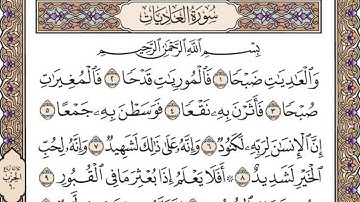 سُورَةُ العَادِيَاتِ
بِسْمِ ٱللَّهِ ٱلرَّحْمَٰنِ ٱلرَّحِيمِ
وَٱلْعَٰدِيَٰتِ ضَبْحًا ١ فَٱلْمُورِيَٰتِ قَدْحًا ٢ فَٱلْمُغِيرَٰتِ
صُبْحًا ٣ فَأَثَرْنَ بِهِۦ نَقْعًا ٤ فَوَسَطْنَ بِهِۦ جَمْعًا ٥
إِنَّ ٱلْإِنسَٰنَ لِرَبِّهِۦ لَكَنُودٌ ٦ وَإِنَّهُۥ عَلَىٰ ذَٰلِكَ لَشَهِيدٌ ٧ وَإِنَّهُۥ لِحُبِّ
ٱلْخَيْرِ لَشَدِيدٌ ٨ ۞ أَفَلَا يَعْلَمُ إِذَا بُعْثِرَ مَا فِى ٱلْقُبُورِ ٩
الحزب
٦٠